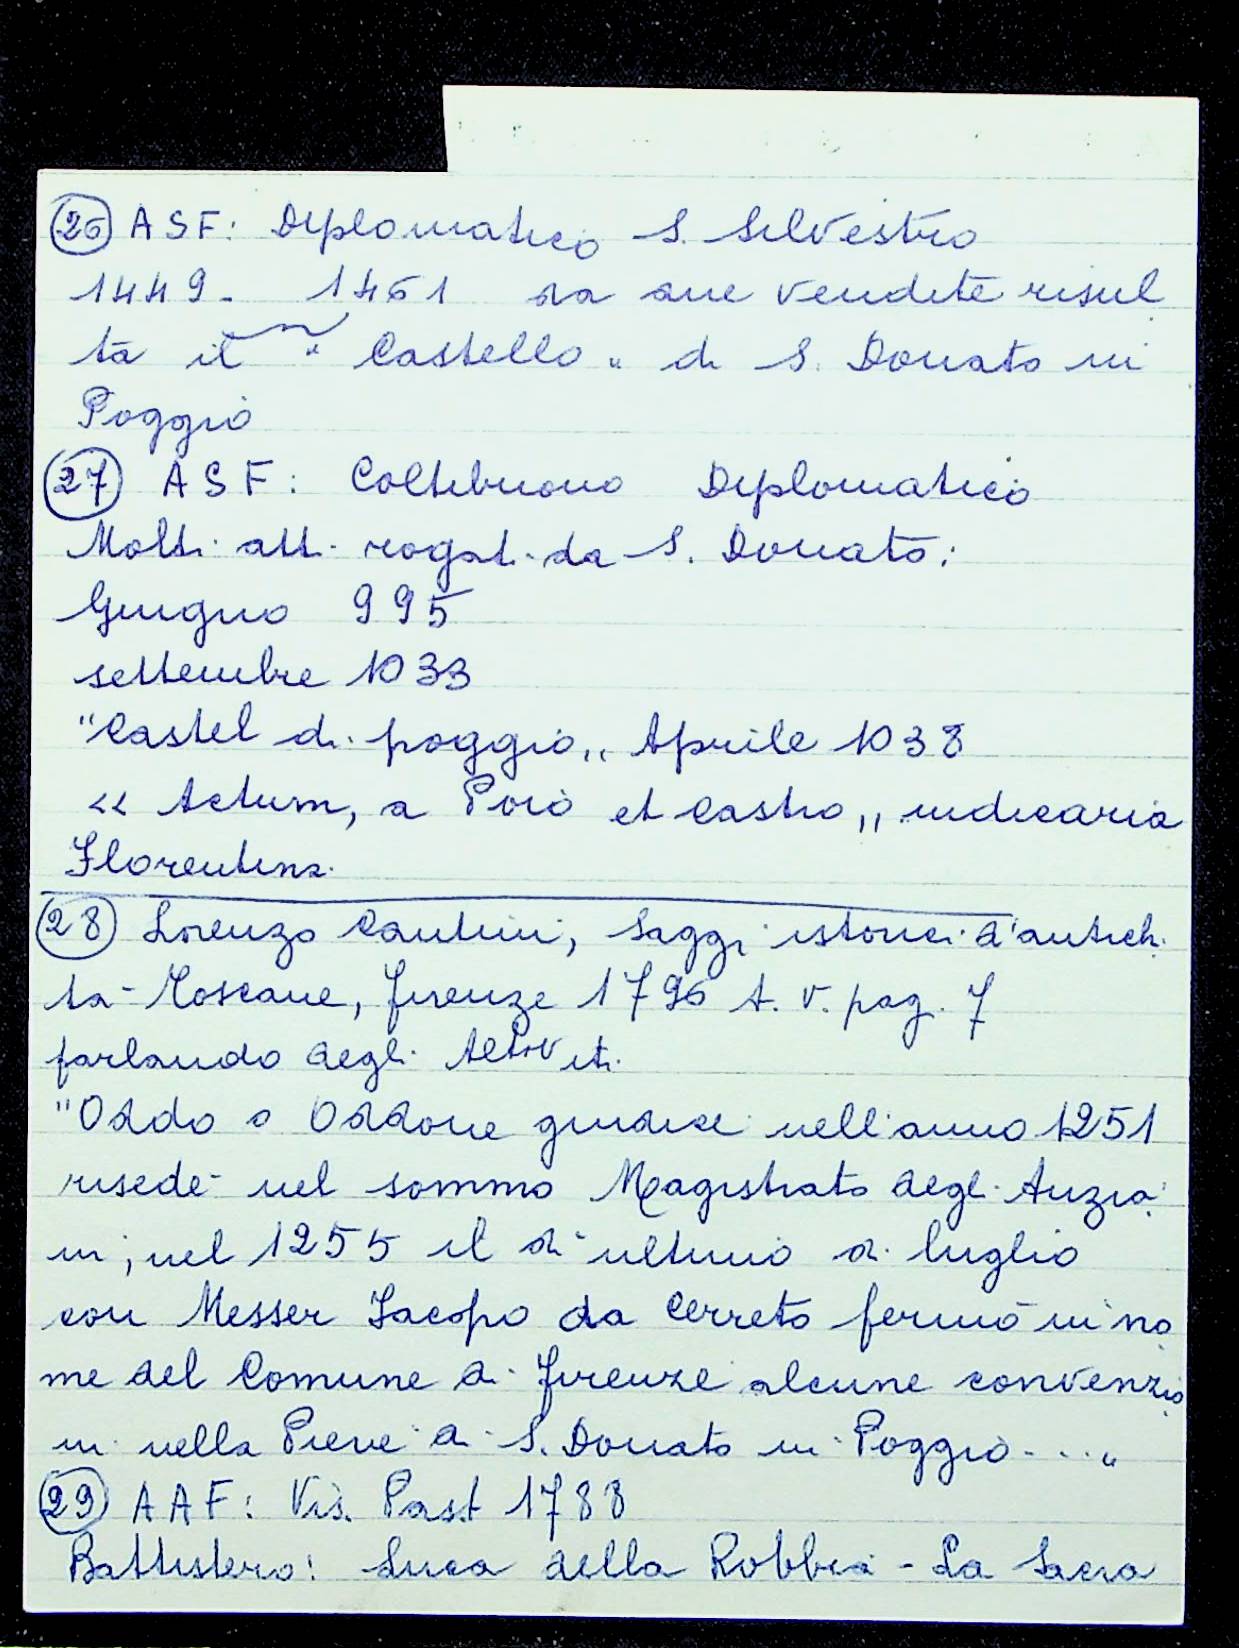 26 ASF: Diplomatico S. Silvestro
1449 - 1461 da due vendite risul
ta il " Castello " di S. Donato in
Poggio
27 ASF: Coltibuono Diplomatico
Molti atti rogati da S. Donato:
Giugno 995
settembre 1033
"Castel di poggio" Aprile 1038
« Actum, a Poio et Castro", iudicaria
Florentina.
28 Lorenzo Cantini, Saggi istorici d'antichi
tà Toscane, Firenze 1796 t. V. pag. 7
parlando degli Altoviti.
"Oddo o Oddone giudice nell'anno 1251
risedè nel sommo Magistrato degli Anzia
ni; nel 1255 il dì ultimo di luglio
con Messer Iacopo da Cerreto fermò in no
me del Comune di Firenze alcune convenzio
ni nella Pieve di S. Donato in Poggio...."
29 AAF: Vis. Past 1788
Battistero: Luca della Robbia - La Sacra